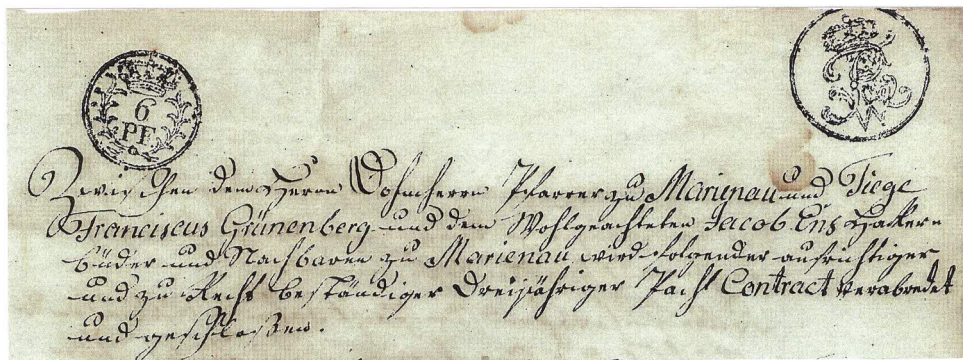 6
PF
FWR
Zwischen dem Herrn Dohmherrn Pfarrer zu Marienau und Tiege
Franciscus Grünenberg und dem Wohlgeachteten Jacob Ens Hacken-
büder und Nachbaren zu Marienau wird folgender aufrichtiger
und zu Recht beständiger Dreijähriger Pacht Contract verabredet
und geschloßen.